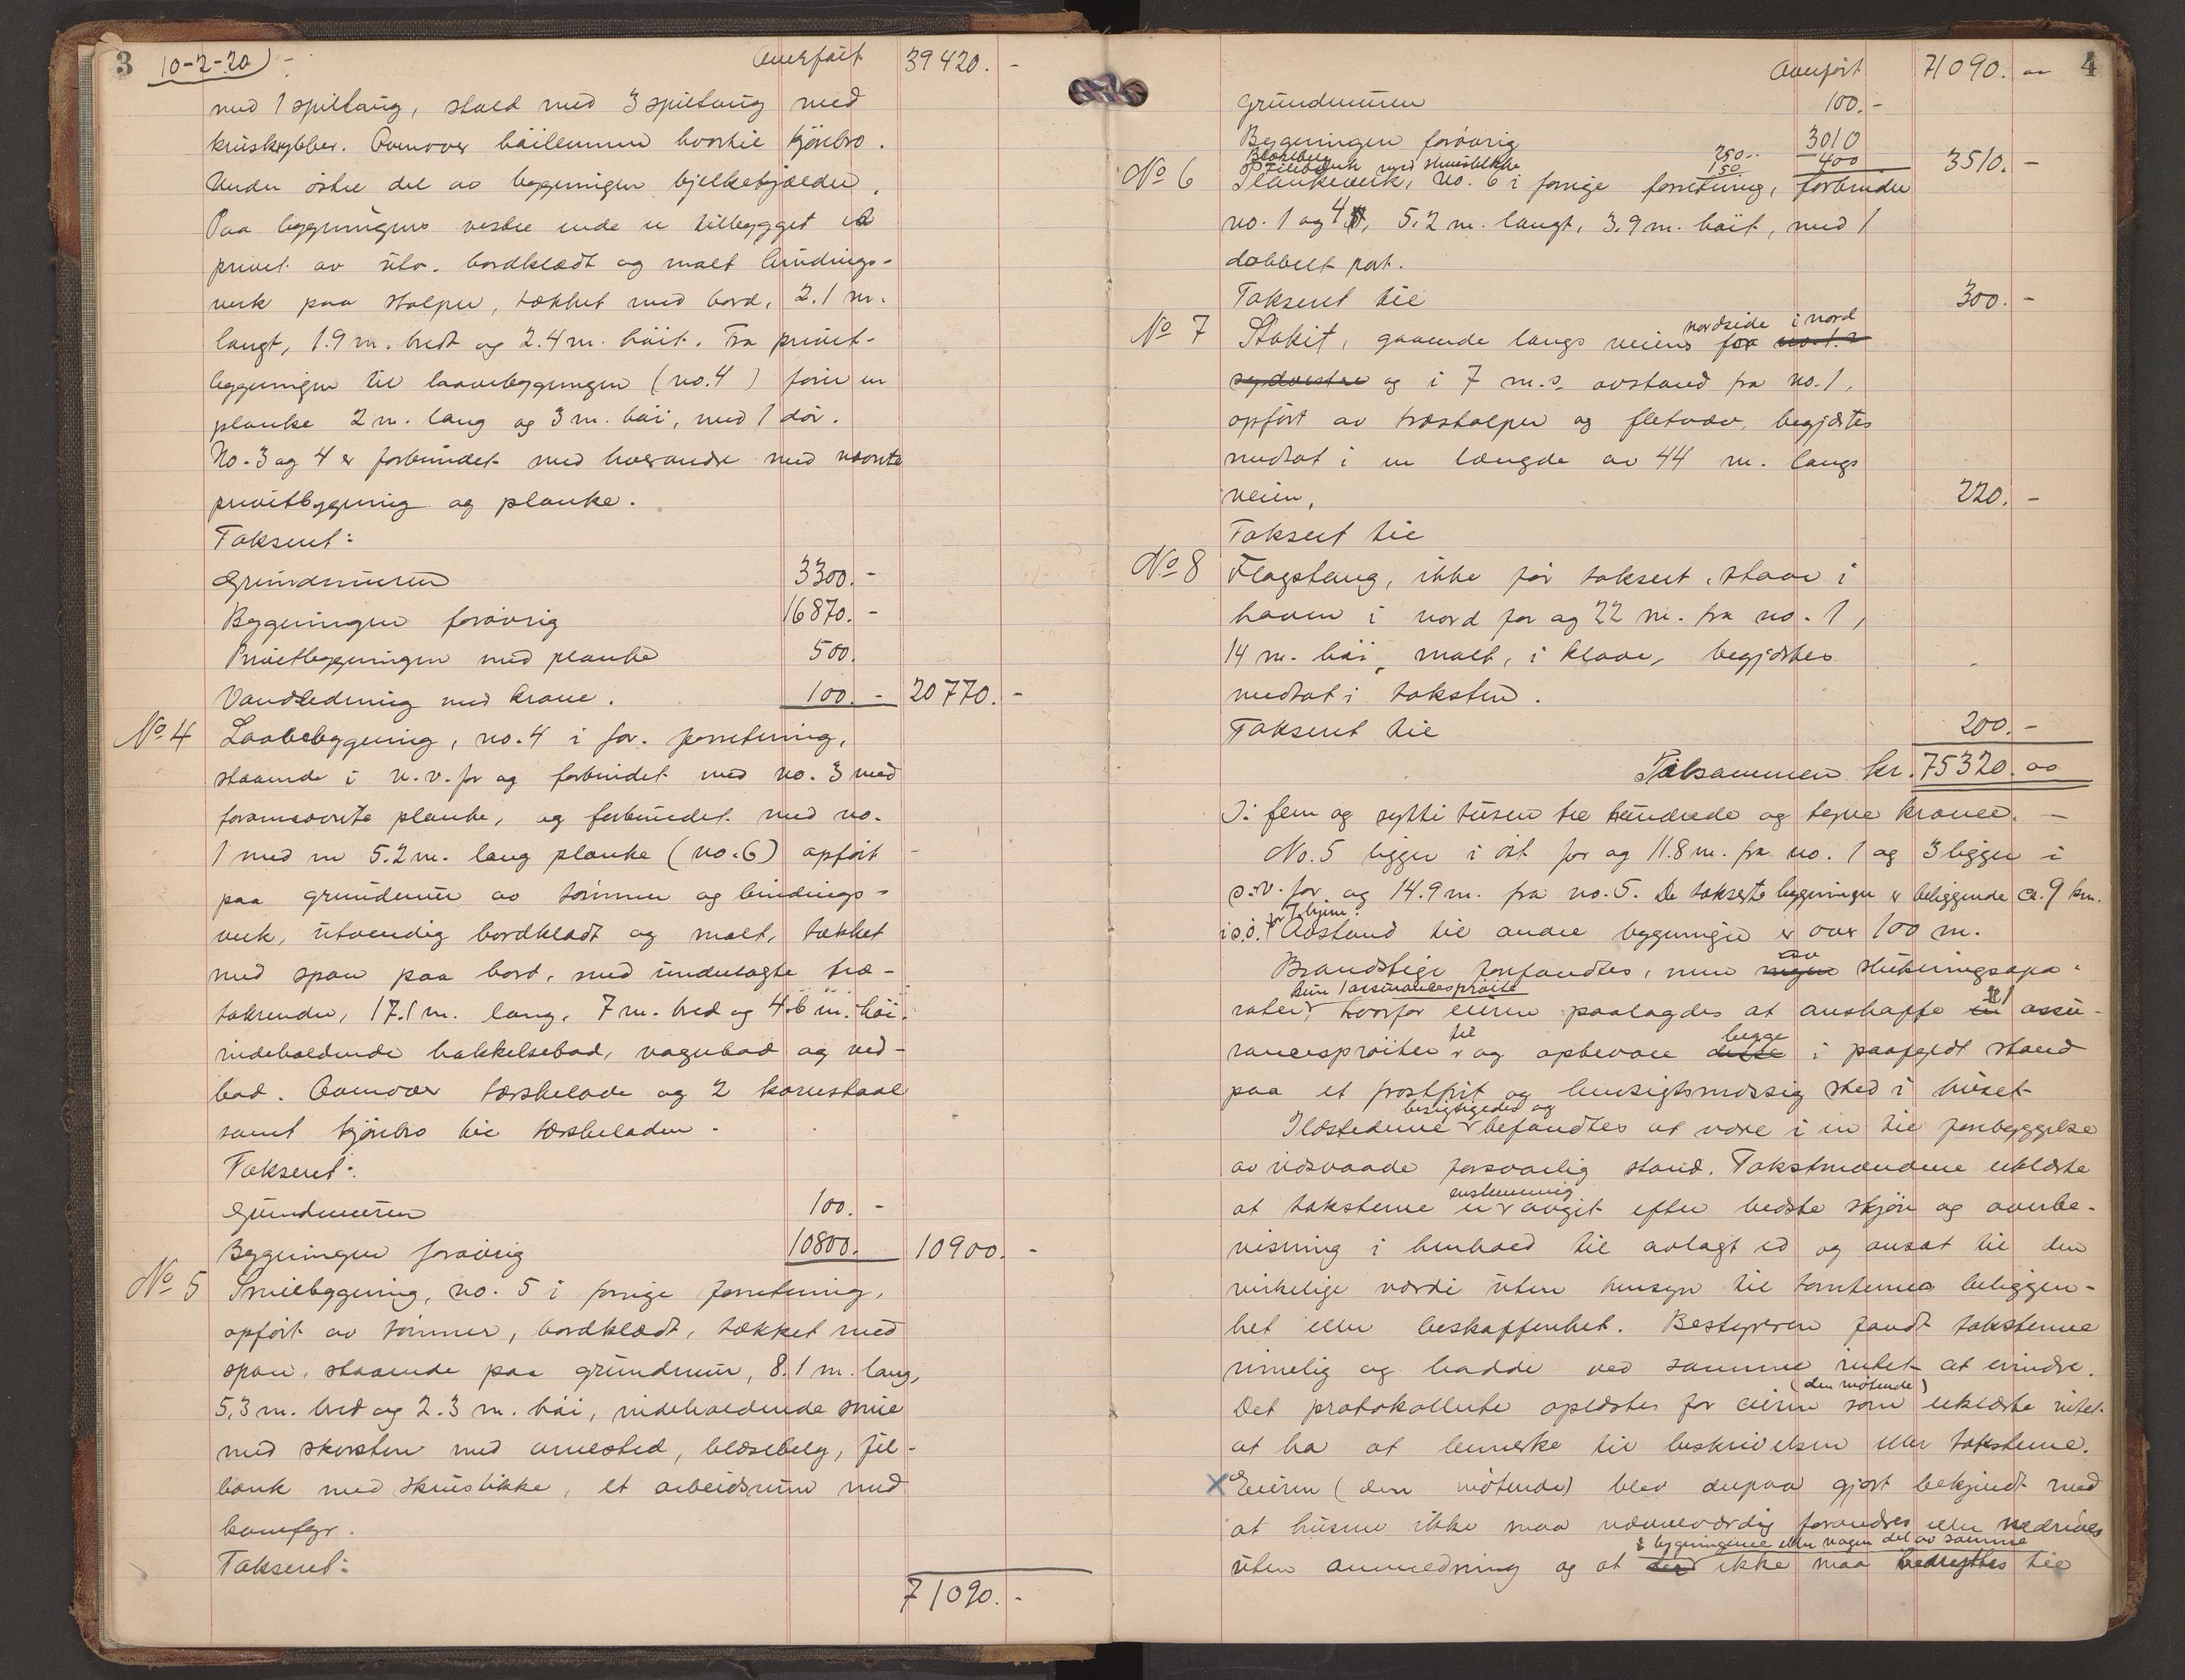 3 10-2-20) - Overført 39420. -
med 1 spiltaug, stald med 3 spiltaug med
kruskrybber. Ovenover høilemmen hvortil kjørebro.
Under østre del av bygningen bjelkekjælder.
Paa bygningens vestre ende er tilbygget et
privet av utv. bordklædt og malt bindings-
verk paa stolper, tækket med bord, 2.1 m.
langt, 1.9 m. bredt og 2.4 m. høit. Fra privet-
bygningen til laavebygningen (no. 4) fører en
planke 2 m. lang og 3 m. høi, med 1 dør.
No. 3 og 4 er forbundet med hverandre med nævnte
privetbygning og planke.
Taksert:
Grundmuren 3300. -
Bygningen forøvrig 16870. -
Privetbygningen med planke 500.
Vandledning med krane. 100. - 20770. -
No 4 Laavebygning, no. 4 i for. forretning,
staaende i n.v. for og forbundet med no. 3 med
foran nævnte planke, og forbundet med no.
1 med en 5.2 m. lang planke (no. 6) opført
paa grundmur av tømmer og bindings-
verk, utvendig bordklædt og malt, tækket
med spon paa bord, med underlagte træ-
takrender, 17.1 m. lang, 7 m. bred og 4.6 m. høi.
indeholdende hakkelsebod, vognbod og ved-
bod. Ovenover tærskelade og 2 kornstaal
samt kjørebro til tærskeladen.
Taksert:
Grundmuren 100. -
Bygningen forøvrig 10800. 10900. -
No 5 Smiebygning, no. 5 i forrige forretning,
opført av tømmer, bordklædt, tækket med
spon, staaende paa grundmur, 8.1 m. lang,
5.3 m. bred og 2.3 m. høi, indeholdende smie
med skorsten med arnested, blæsebelg, fil-
bænk med skrustikke, et arbeidsrum med
komfyr.
Taksert:
71090. -
Overført 71090. oo 4
Grundmuren 100. -
Bygningen forøvrig 3010
Blæsebelg 250 -
Filebænk med skrustikke 150 400 3510. -
No 6 Plankeverk, no. 6 i forrige forretning, forbinder
no. 1 og 4, 5.2 m. langt, 3.9 m. høit, med 1
dobbelt port.
Taksert til 300. -
nordside i nord
No 7 Stakit, gaaende langs veiens for no. 1. s
sydvestre og i 7 m.s. avstand fra no. 1,
opført av træstolper og fletværk, begjærtes
medtat i en længde av 44 m. langs
veien, 220. -
Taksert til
No 8 Flagstang, ikke før taksert, staar i
haven i nord for og 22 m. fra no. 1,
14 m. høi, malt, i klave, begjærtes
medtat i taksten.
Taksert til 200. -
Tilsammen kr. 75320. oo
I: fem og sytti tusen tre hundrede og tyve kroner. -
No. 5 ligger i øst for og 11.8 m. fra no. 1 og 3 ligger i
s.v. for og 14.9 m. fra no. 5. De takserte bygninger er beliggende ca. 9 km.
i s.ø. Avstand til andre bygninger er over 100 m.
Brandstige forfandtes, men av ingen slukningsapa-
kun 1 assurancesprøite
rater, hvorfor eieren paalagdes at anskaffe en 1 assu-
til begge
rancesprøiter og opbevare disse i paafyldt stand
paa et frostfrit og hensigtsmæssig sted i huset
besigtigedes og
Ildstederne befandtes at være i en til forebyggelse
av ildsvaade forsvarlig stand. Takstmændene erklærte
enstemmig
at taksterne er avgit efter bedste skjøn og overbe-
visning i henhold til avlagt ed og ansat til den
virkelige værdi uten hensyn til tomternes beliggen-
het eller beskaffenhet. Bestyreren fandt taksterne
rimelig og hadde ved samme intet at erindre.
(den møtende)
Det protokollerte oplæstes for eieren som erklærte intet
at ha at bemerke til beskrivelsen eller taksterne.
x Eieren (den møtende) blev derpaa gjort bekjendt med
at husene ikke maa nævneværdig forandres eller nedrives
bygningene eller nogen del av samme
uten anmeldning og at ikke maa benyttes til